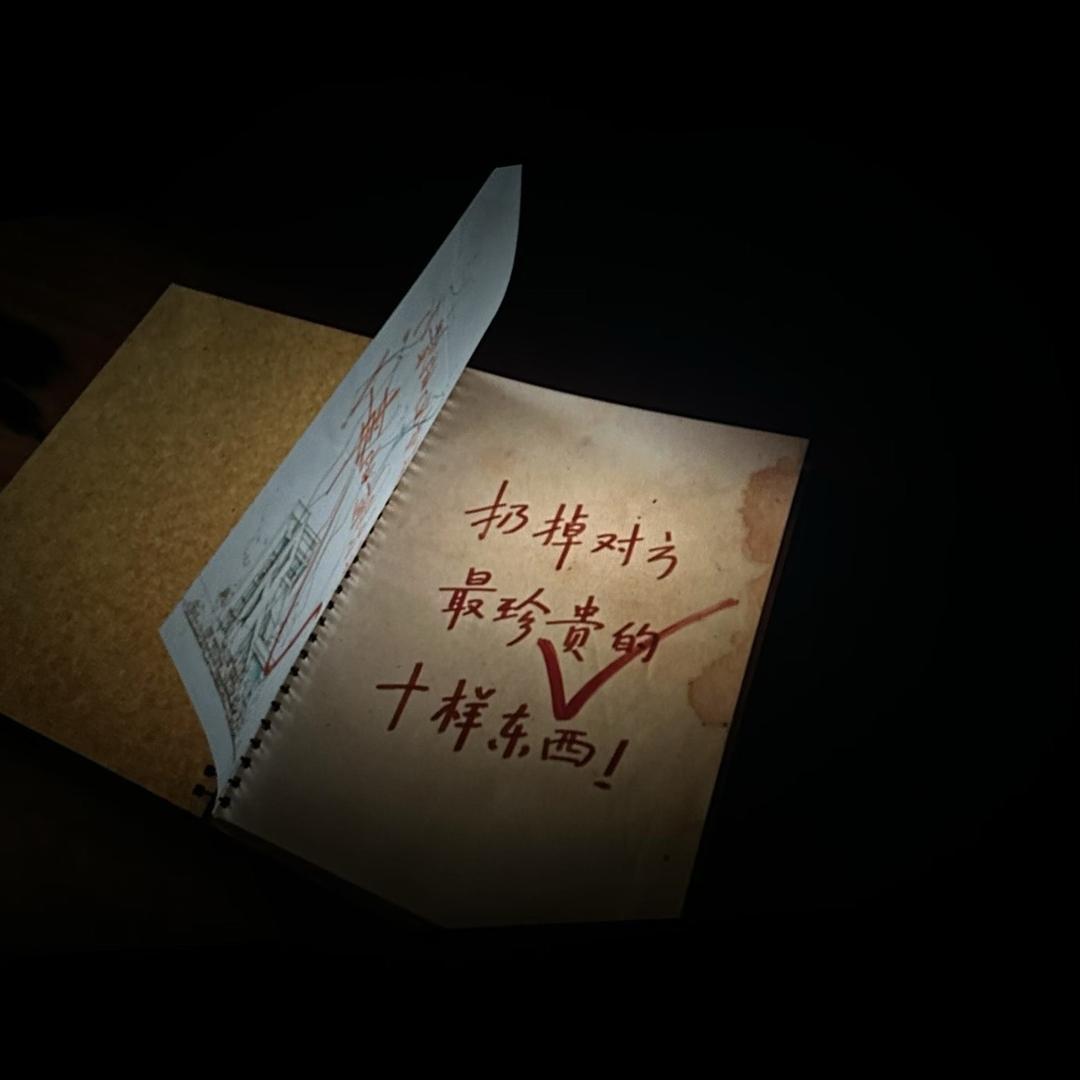 扔掉对方
最珍贵的
十样东西！